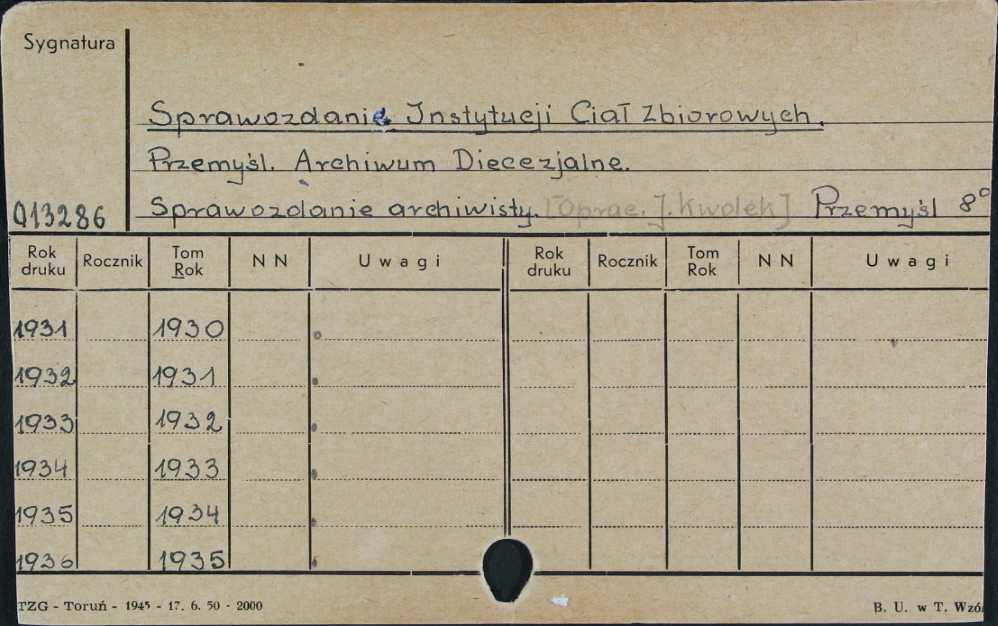 Sygnatura
Sprawozdanie Instytucji Ciał Zbiorowych.
Przemyśl. Archiwum Diecezjalne.
013286 Sprawozdanie archiwisty. [Oprac. J. Kwolek] Przemyśl 8°
Rok druku Rocznik Tom Rok N N Uwagi Rok druku Rocznik Tom Rok N N Uwagi
1931 1930
1932 1931
1933 1932
1934 1933
1935 1934
1936 1935
TZG - Toruń - 1945 - 17. 6. 50 - 2000 B. U. w T. Wzó